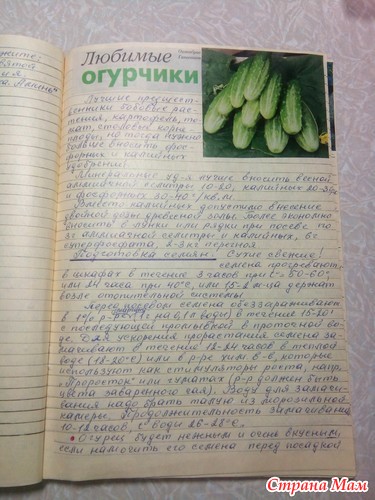 Любимые
огурчики
Лучшие предшест-
венники бобовые рас-
тения, картофель, то-
мат, столовые корне-
плоды, но тогда нужно
больше вносить фос-
форных и калийных
удобрений.
Минеральные уд-я лучше вносить весной
аммиачной селитры 10-20, калийных 20-30г
и фосфорных 30-40г/кв.м.
Вместо калийных допустимо внесение
двойной дозы древесной золы. Более экономно
вносить в лунки или рядки при посеве по
5г аммиачной селитры и калийных, 8г
суперфосфата, 2-3кг перегноя
Подготовка семян: Сухие свежие!
семена прогревают
в шкафах в течение 3 часов при t=50-60°
или 24 часа при 40°C, или 1,5-2 м-ца держат
возле отопительной системы.
Перед посевом семена обеззараживают
в 1% р-ре (1г на 0,1л воды) в течение 15-20'
с последующей промывкой в проточной во-
де. Для ускорения прорастания семена за-
мачивают в течение 12-24 часов в теплой
воде (18-20°C) или в р-ре хим в-в, которые
используют как стимуляторы роста, напр.,
"Проросток" или гуматах (р-р должен быть
цвета заваренного чая). Воду для замачи-
вания надо брать талую из морозильной
камеры. Продолжительность замачивания
10-12 часов, t° воды 26-28°C.
Огурец будет нежным и очень вкусным
если намочить его семена перед посадкой
Страна Мам